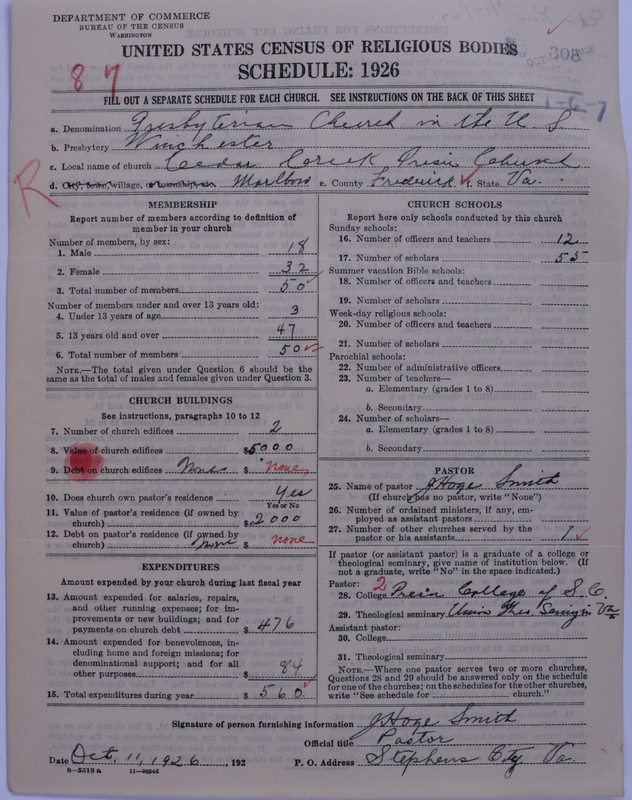 DEPARTMENT OF COMMERCE
BUREAU OF THE CENSUS
WASHINGTON
UNITED STATES CENSUS OF RELIGIOUS BODIES
308
SCHEDULE: 1926
8 7
FILL OUT A SEPARATE SCHEDULE FOR EACH CHURCH. SEE INSTRUCTIONS ON THE BACK OF THIS SHEET
1-6-7
a. Denomination Presbyterian Church in the U S
b. Presbytery Winchester
c. Local name of church Cedar Creek Presn Church
R
d. City, town, village, or township, etc. Marlboro e. County Frederick f. State Va.
MEMBERSHIP
Report number of members according to definition of
member in your church
Number of members, by sex:
1. Male 18
2. Female 32
3. Total number of members 50
Number of members under and over 13 years old:
4. Under 13 years of age 3
5. 13 years old and over 47
6. Total number of members 50
NOTE.—The total given under Question 6 should be the
same as the total of males and females given under Question 3.
CHURCH BUILDINGS
See instructions, paragraphs 10 to 12
7. Number of church edifices 2
8. Value of church edifices $5000
9. Debt on church edifices None $ none
10. Does church own pastor's residence Yes
Yes or No
11. Value of pastor's residence (if owned by
church) $2000
12. Debt on pastor's residence (if owned by
church) none $ none
EXPENDITURES
Amount expended by your church during last fiscal year
13. Amount expended for salaries, repairs,
and other running expenses; for im-
provements or new buildings; and for
payments on church debt $ 476
14. Amount expended for benevolences, in-
cluding home and foreign missions; for
denominational support; and for all
other purposes $ 84
15. Total expenditures during year $ 560
CHURCH SCHOOLS
Report here only schools conducted by this church
Sunday schools:
16. Number of officers and teachers 12
17. Number of scholars 55
Summer vacation Bible schools:
18. Number of officers and teachers
19. Number of scholars
Week-day religious schools:
20. Number of officers and teachers
21. Number of scholars
Parochial schools:
22. Number of administrative officers
23. Number of teachers—
a. Elementary (grades 1 to 8)
b. Secondary
24. Number of scholars—
a. Elementary (grades 1 to 8)
b. Secondary
PASTOR
25. Name of pastor J Hoge Smith
(If church has no pastor, write "None")
26. Number of ordained ministers, if any, em-
ployed as assistant pastors
27. Number of other churches served by the
pastor or his assistants 1
If pastor (or assistant pastor) is a graduate of a college or
theological seminary, give name of institution below. (If
not a graduate, write "No" in the space indicated.)
Pastor: 2
28. College Presn College of S.C.
29. Theological seminary Union Theo. Va
Assistant pastor:
30. College
31. Theological seminary
NOTE.—Where one pastor serves two or more churches,
Questions 28 and 29 should be answered only on the schedule
for one of the churches; on the schedules for the other churches,
write "See schedule for church."
Signature of person furnishing information J Hoge Smith
Official title Pastor
Date Oct. 11, 1926, 192
P. O. Address Stephens City Va.
8—5518 a 11—9054d